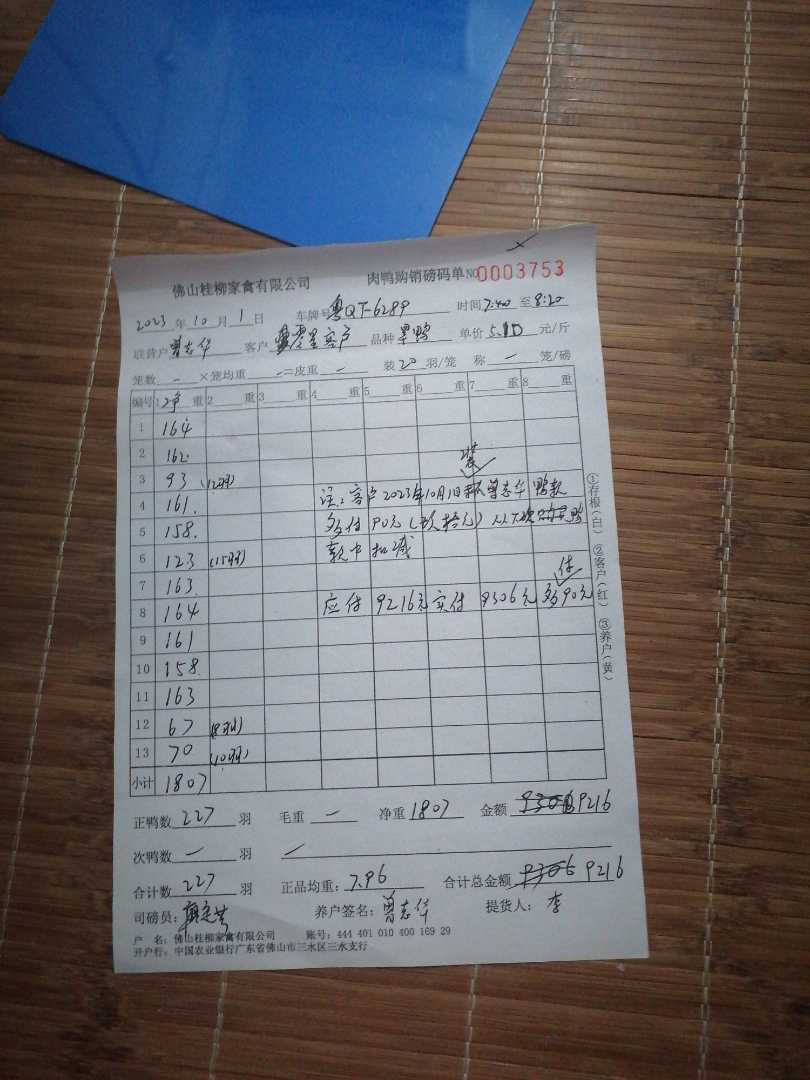 佛山桂柳家禽有限公司 肉鸭购销磅码单 NO 0003753
2023年10月1日 车牌号粤QT-6289 时间7:40至8:20
联营户曾志华 客户零星客户 品种 单价5.10元/斤
笼数 - ×笼均重 - =皮重 - 装20羽/笼 称 - 笼/磅
编号 1净重 2 重 3 重 4 重 5 重 6 重 7 重 8 重
1 164
2 162.
3 93 (12羽)
装
4 161. 注:客户2023年10月1日 曾志华 鸭款
5 158. 多付90元(玖拾元)从下次的 鸭
6 123 (15羽) 款中扣减
7 163. 付
8 164 应付9216元实付9306元多90元
9 161
10 158
11 163
12 67 (8羽)
13 70 (10羽)
小计 1807
①存根(白) ②客户(红) ③养户(黄)
正鸭数227羽 毛重 - 净重1807 金额9306 9216
次鸭数 - 羽
合计数227羽 正品均重:7.96 合计总金额9306 9216
司磅员: 养户签名:曾志华 提货人:李
户 名:佛山桂柳家禽有限公司 账号:444 401 010 400 169 29
开户行:中国农业银行广东省佛山市三水区三水支行